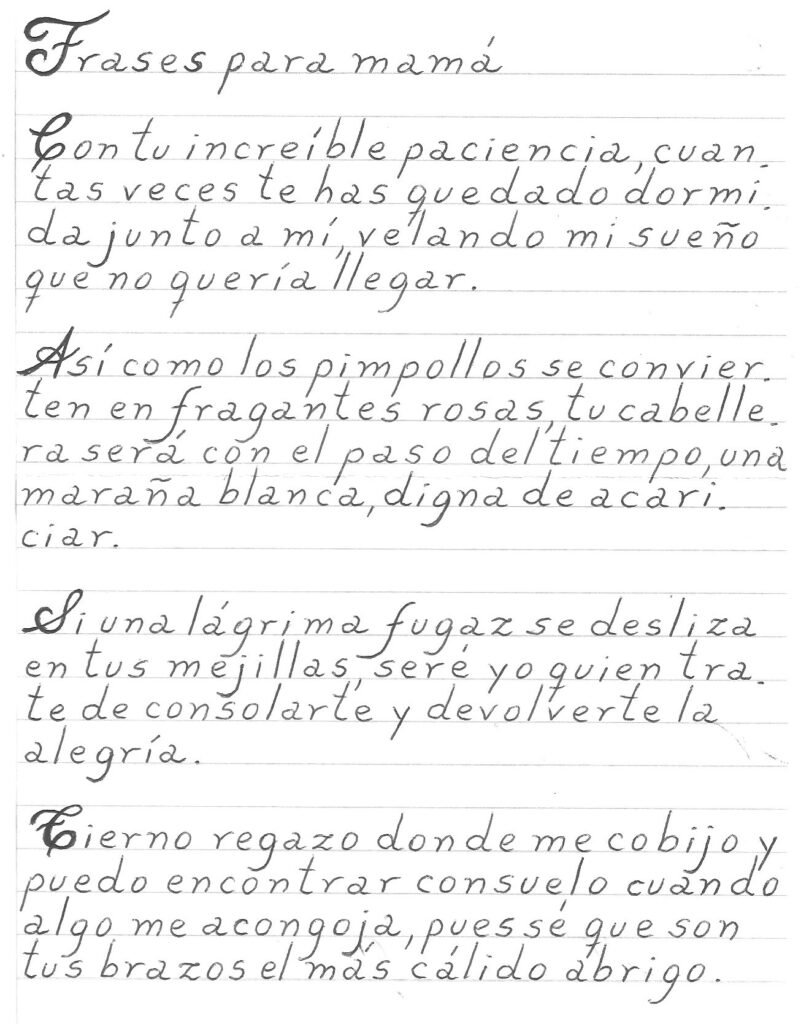 Frases para mamá
Con tu increíble paciencia, cuan-
tas veces te has quedado dormi-
da junto a mí, velando mi sueño
que no quería llegar.
Así como los pimpollos se convier-
ten en fragantes rosas, tu cabelle-
ra será con el paso del tiempo, una
maraña blanca, digna de acari-
ciar.
Si una lágrima fugaz se desliza
en tus mejillas, seré yo quien tra-
te de consolarte y devolverte la
alegría.
Tierno regazo donde me cobijo y
puedo encontrar consuelo cuando
algo me acongoja, pues sé que son
tus brazos el más cálido abrigo.